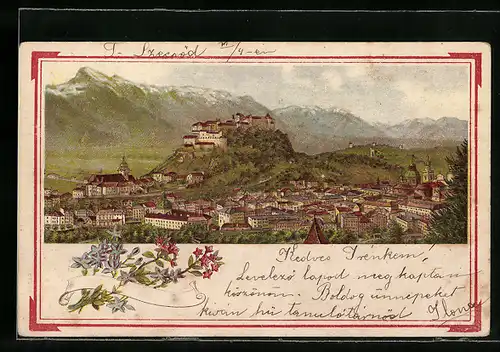 T-Szecsőd IV/4-én
Kedves Irénkém!
Levelező lapod megkaptam
köszönöm. Boldog ünnepeket
kiván hű tanulótársnőd Ilona